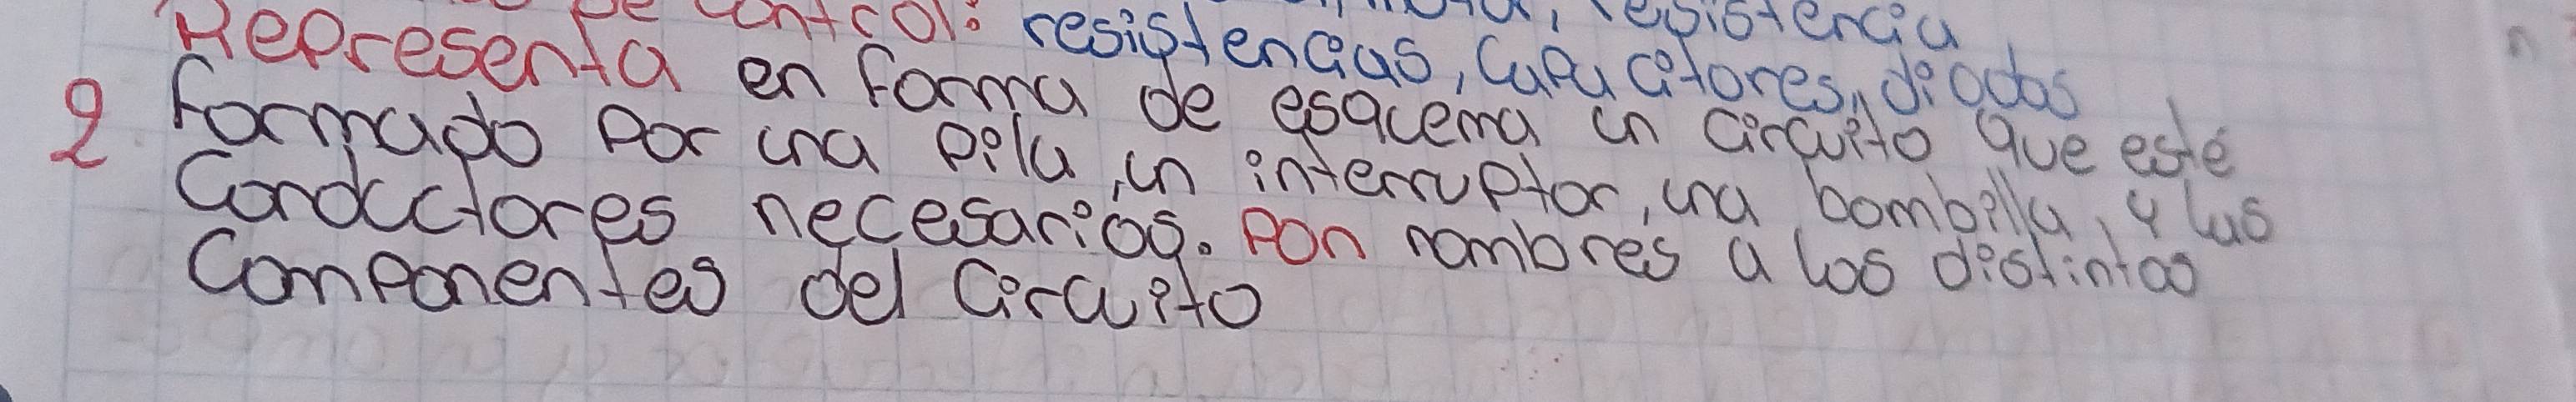 de control: resistencias, capacitores, diodos
2 Representa en forma de esquema un circuito que esté
formado por una pila, un interruptor, una bombilla, y los
Conductores necesarios. Pon nombres a los distintos
Componentes del Circuito